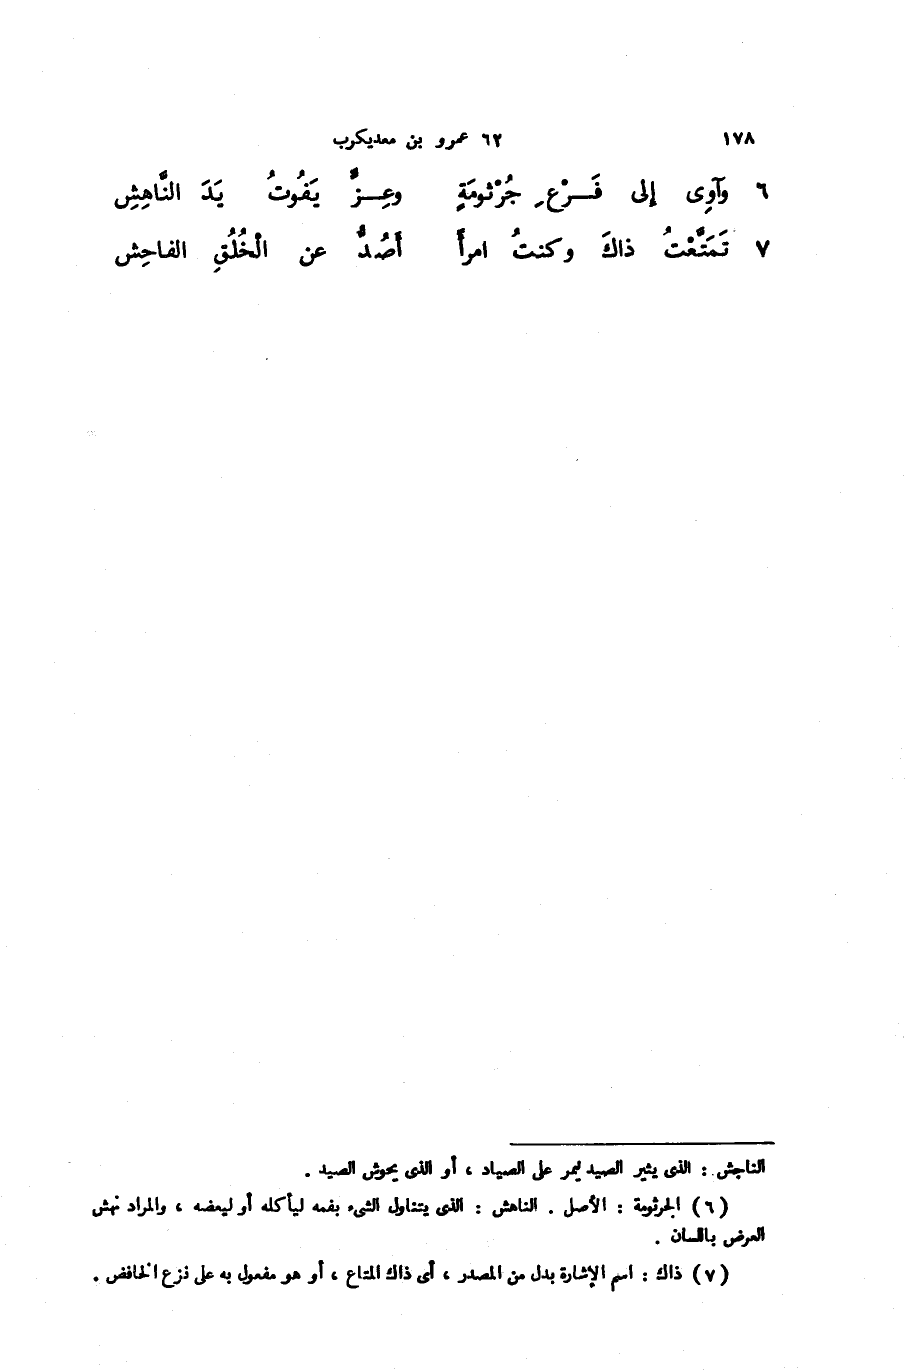 ١٧٨ ٦٢ عمرو بن معديكرب
٦ وآوِى إلى فَــرْعِ جُرْثومَةٍ وعِــزٍّ يَفُوتُ يَدَ النَّاهِشِ
٧ تَمَتَّعْتُ ذاكَ وكنتُ امرأً أَصُدُّ عن الْخُلُقِ الفاحِش
الناجش : الذى يثير الصيد ليمر على الصياد ، أو الذى يحوش الصيد .
(٦) الجرثومة : الأصل . الناهش : الذى يتناول الشىء بفمه ليأكله أو ليعضه ، والمراد نهش
العرض باللسان .
(٧) ذاك : اسم الإشارة بدل من المصدر ، أى ذاك المتاع ، أو هو مفعول به على نزع الخافض .